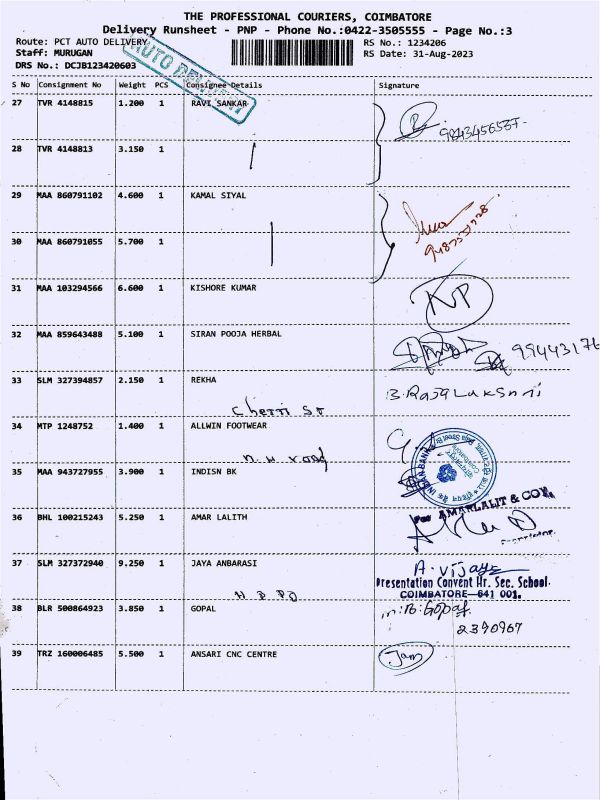 THE PROFESSIONAL COURIERS, COIMBATORE
Delivery Runsheet - PNP - Phone No.:0422-3505555 - Page No.:3
Route: PCT AUTO DELIVERY
RS No.: 1234206
Staff: MURUGAN
RS Date: 31-Aug-2023
DRS No.: DCJB123420603
AUTO DELIVERY
S No Consignment No Weight PCS Consignee Details Signature
27 TVR 4148815 1.200 1 RAVI SANKAR
28 TVR 4148813 3.150 1
29 MAA 860791102 4.600 1 KAMAL SIYAL
30 MAA 860791055 5.700 1
31 MAA 103294566 6.600 1 KISHORE KUMAR KP
32 MAA 859643488 5.100 1 SIRAN POOJA HERBAL 99443176
33 SLM 327394857 2.150 1 REKHA B. Rajalakshmi
Chetti St
34 MTP 1248752 1.400 1 ALLWIN FOOTWEAR
N.H road
35 MAA 943727955 3.900 1 INDISN BK
INDIAN BANK
36 BHL 100215243 5.250 1 AMAR LALITH
For AMARLALIT & COY.
37 SLM 327372940 9.250 1 JAYA ANBARASI A. Vijaya
Presentation Convent Hr. Sec. School.
COIMBATORE-641 001.
H P O
38 BLR 500864923 3.850 1 GOPAL Gopal
2390967
39 TRZ 160006485 5.500 1 ANSARI CNC CENTRE Jam